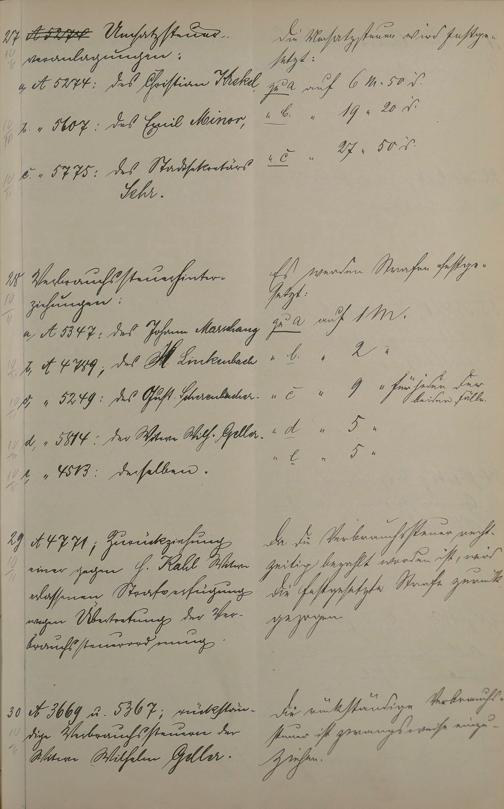 27 A 5274 Umsatzsteuer-
veranlagungen:
a, A 5274: des Christian Krekel
b, " 5607: des Emil Minor,
c, " 5775: des Stadtsekretärs
Sehr.
Die Umsatzsteuer wird festge-
setzt:
zu a auf 6 M. 50 d.
" b. " 19 " 20 d.
" c " 27 " 50 d.
28 Verbrauchssteuerhinter-
ziehungen:
a, A 5347: des Johann
b, A 4759, des Linkenbach
c, " 5249: des Gust.
d, " 5814: der Witwe Wilh. Geller.
e, " 4513: derselben.
Es werden Strafen festge-
setzt:
zu a auf 1 M.
" b. " 2 "
" c " 9 " für jeden der
beiden Fälle.
" d " 5 "
" e " 5 "
29 A 4771, Zurückziehung
einer gegen H. Kahl Witwe
erlassenen Strafverfügung
wegen Übertretung der Ver-
brauchssteuerordnung.
Da die Verbrauchssteuer recht-
zeitig bezahlt worden ist, wird
die festgesetzte Strafe zurück
gezogen
30 A 3669 u. 5367; rückstän-
dige Verbrauchssteuern der
Witwe Wilhelm Geller.
Die rückständige Verbrauchs-
steuer ist zwangsweise einzu-
ziehen.